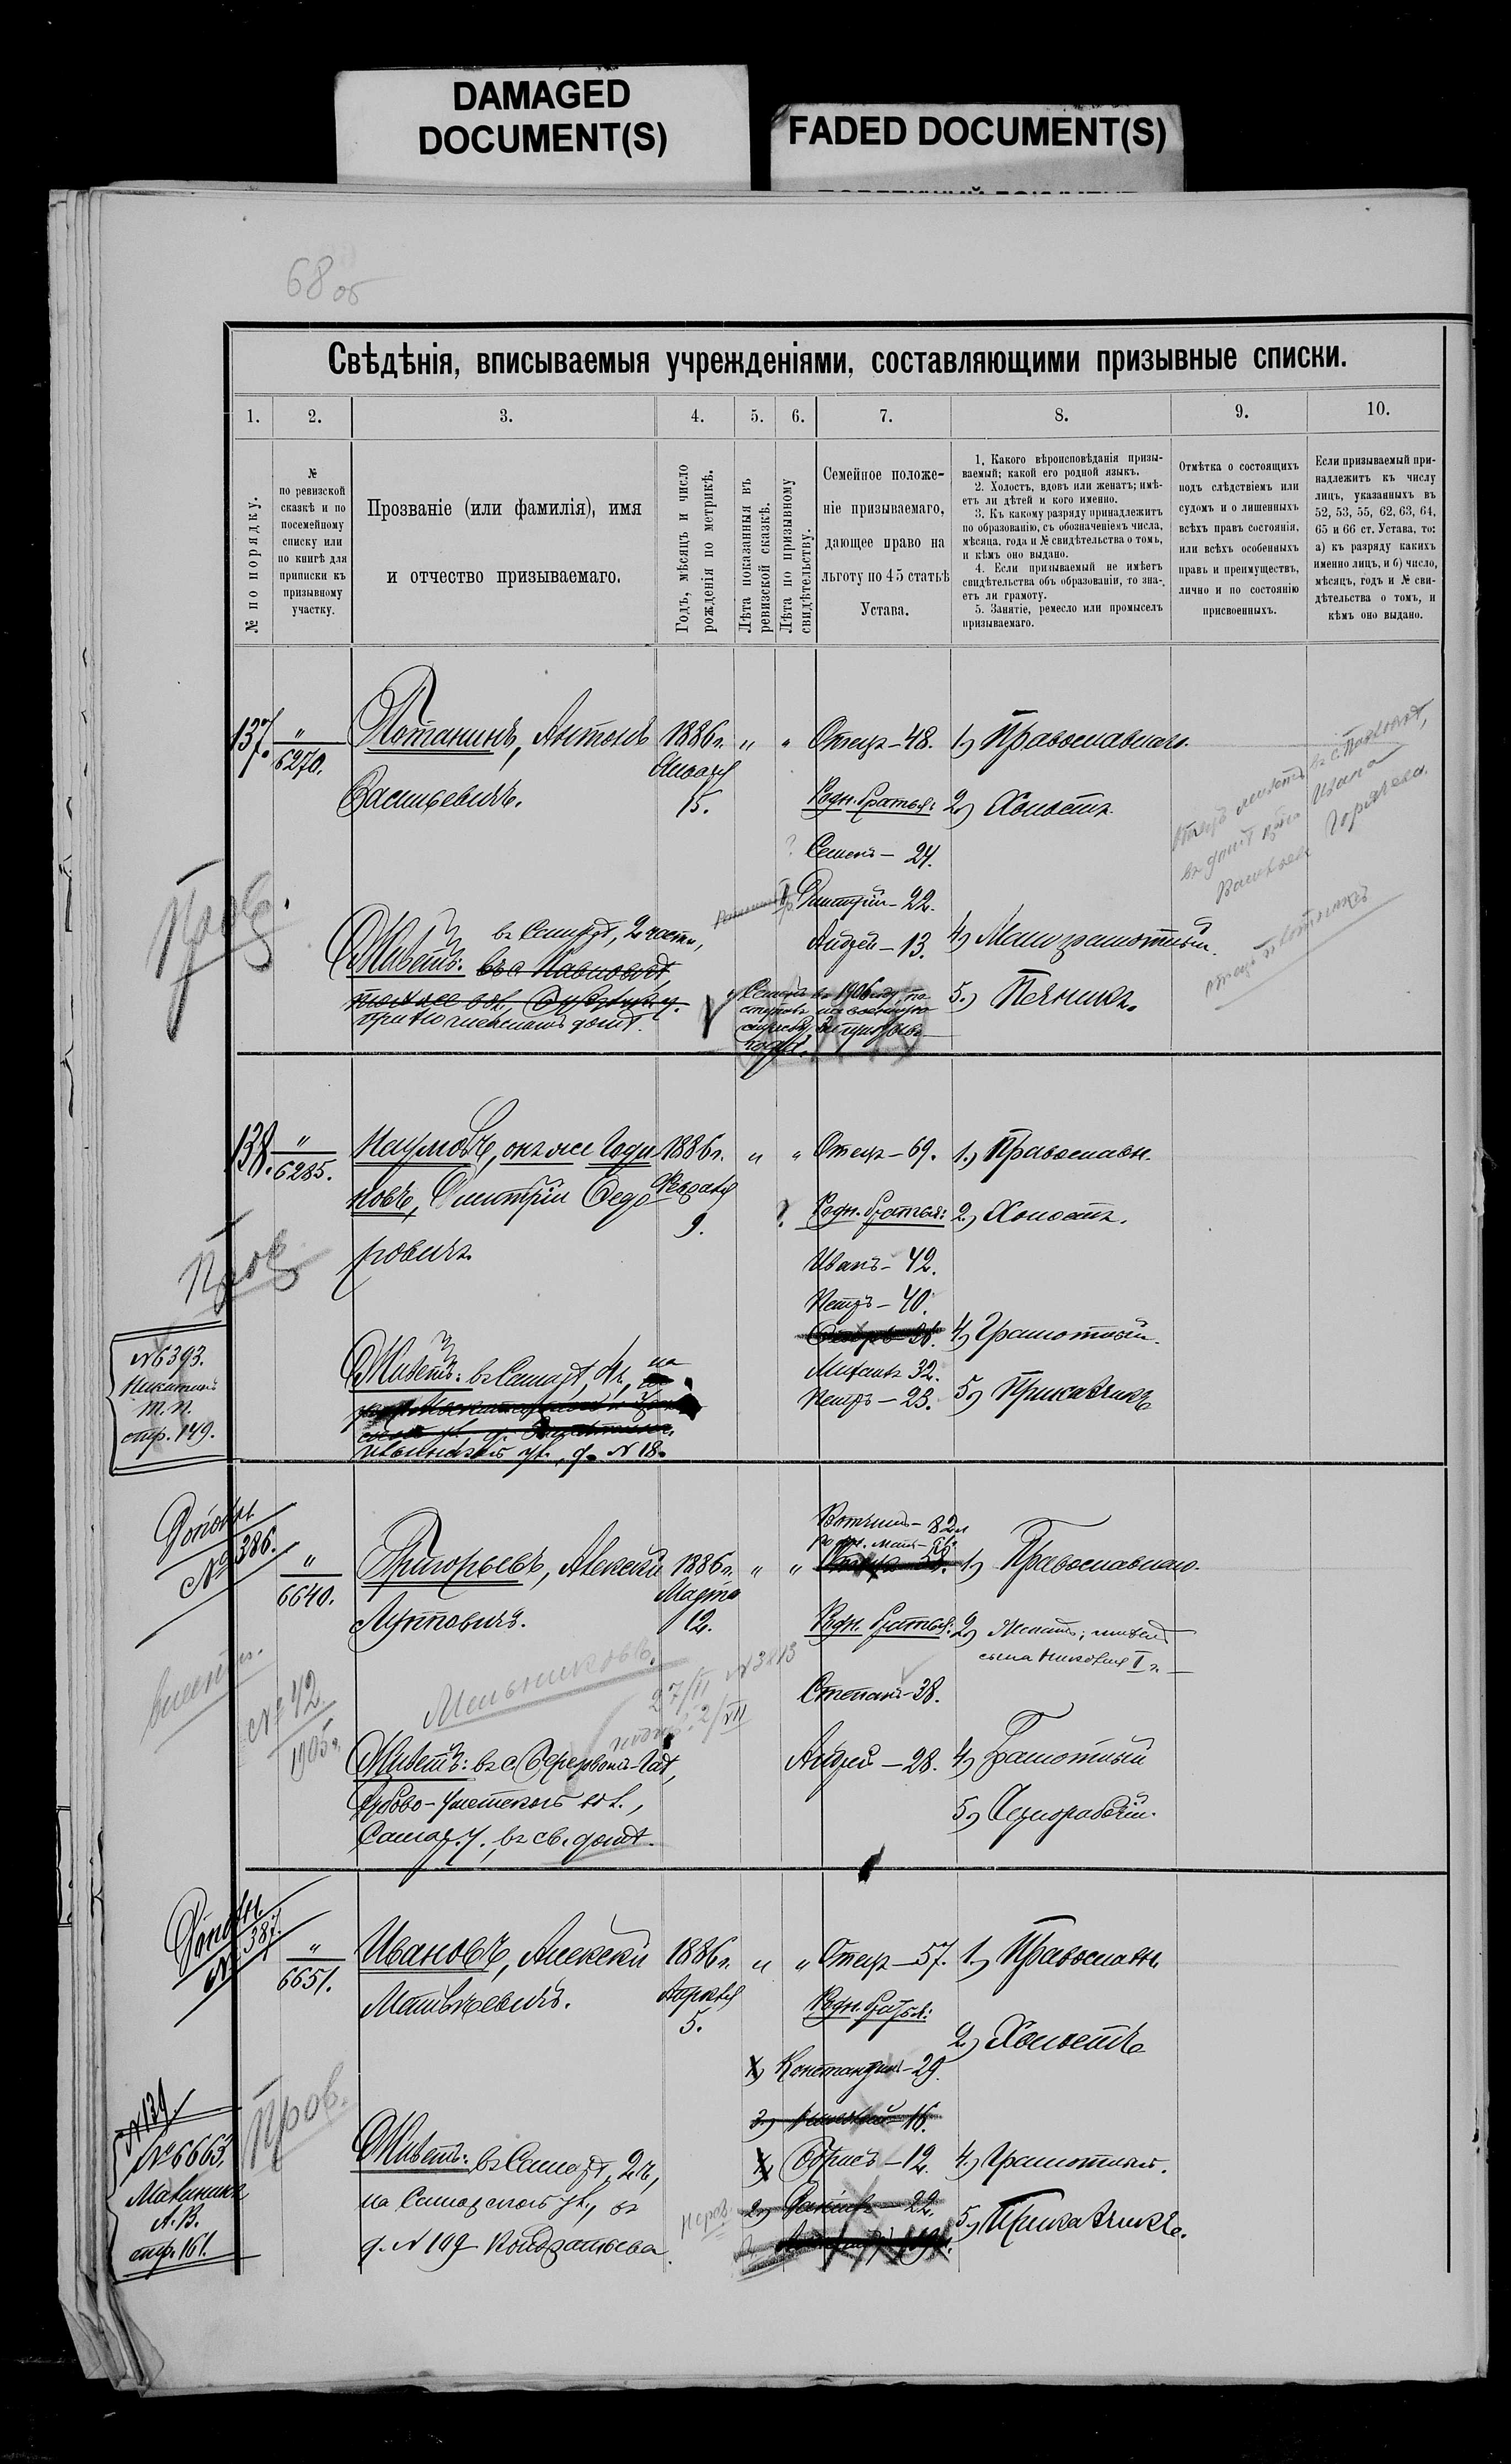 DAMAGED
DOCUMENT(S)
FADED DOCUMENT(S)
68 об
Свѣдѣнія, вписываемыя учрежденіями, составляющими призывные списки.
1. 2. 3. 4. 5. 6. 7. 8. 9. 10.
№ по порядку.
№
по ревизской
сказкѣ и по
посемейному
списку или
по книгѣ для
приписки къ
призывному
участку.
Прозваніе (или фамилія), имя
и отчество призываемаго.
Годъ, мѣсяцъ и число
рожденія по метрикѣ.
Лѣта показанныя въ
ревизской сказкѣ.
Лѣта по призывному
свидѣтельству.
Семейное положе-
ніе призываемаго,
дающее право на
льготу по 45 статьѣ
Устава.
1. Какого вѣроисповѣданія призы-
ваемый; какой его родной языкъ.
2. Холостъ, вдовъ или женатъ; имѣ-
етъ ли дѣтей и кого именно.
3. Къ какому разряду принадлежитъ
по образованію, съ обозначеніемъ числа,
мѣсяца, года и № свидѣтельства о томъ,
и кѣмъ оно выдано.
4. Если призываемый не имѣетъ
свидѣтельства объ образованіи, то зна-
етъ ли грамоту.
5. Занятіе, ремесло или промыселъ
призываемаго.
Отмѣтка о состоящихъ
подъ слѣдствіемъ или
судомъ и о лишенныхъ
всѣхъ правъ состоянія,
или всѣхъ особенныхъ
правъ и преимуществъ,
лично и по состоянію
присвоенныхъ.
Если призываемый при-
надлежитъ къ числу
лицъ, указанныхъ въ
52, 53, 55, 62, 63, 64,
65 и 66 ст. Устава, то:
а) къ разряду какихъ
именно лицъ, и б) число,
мѣсяцъ, годъ и № сви-
дѣтельства о томъ, и
кѣмъ оно выдано.
137. " 6270.
Потанинъ, Антонъ
Васильевичъ.
1886 г.
Января
15.
" "
Отецъ – 48.
Родн. братья:
? Семенъ – 24.
Дмитрій – 22.
Андрей – 13.
Семенъ въ 1906 году по-
ступилъ на военную
службу
1) Православнаго.
2) Холостъ.
4) Малограмотный.
5.) Печникъ.
Отецъ живетъ въ с. Павловкѣ,
въ домѣ Ивана
Горячева.
Пров.
Живетъ: въ Самарѣ, 2 части,
въ с. Павловкѣ,
138. " 6285.
Наумовъ, онъ же Годи
новъ, Дмитрій Ѳедо
ровичъ.
1886 г.
Февраля
9.
" "
Отецъ – 69.
? Родн. братья:
Иванъ – 42.
Петръ – 40.
Михаилъ 32.
Петръ – 23.
1.) Православн.
2.) Холостъ.
4) Грамотный.
5) Прикащикъ
Пров
Живетъ: въ Самарѣ, 4 ч., на
ул., д. № 18.
№ 6393.
Никитинъ
т. п.
стр. 149.
Дополн.
№ 386.
" 6640.
Григорьевъ, Алексѣй
1886 г.
Марта
12.
" "
Вотчимъ – 82 л
Родн. братья:
Степанъ – 38.
Андрей – 28.
1) Православнаго.
2) Женатъ; имѣетъ
сына Николая 1 г.
4) Грамотный
5) Чернорабочій.
№ 42
1905 г.
Мельниковъ.
27/II № 3813
2/VII
Живетъ: въ с. Березовомъ-Гаѣ,
Дубово-Уметской вол.,
Самар. у., въ св. домѣ.
Дополн.
№ 387.
" 6651.
Ивановъ, Алексѣй
Матвѣевичъ.
1886 г.
Апрѣля
5.
" "
Отецъ – 57.
Родн. братья:
Константинъ – 29.
Борисъ – 12.
1.) Православн.
2.) Холостъ
4.) Грамотный.
5.) Прикащикъ.
Пров.
Живетъ: въ Самарѣ, 2 ч.,
на Самарской ул., въ
д. № 109 Кондратьева.
№ 139
№ 6663.
А. В.
стр. 161.